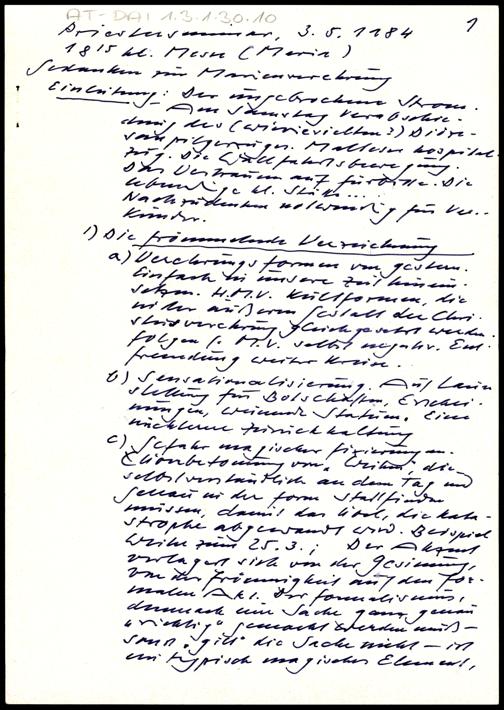 AT-DAI 1.3.1.30.10
1
Priesterseminar, 3.5.1984
18¹⁵ hl. Messe (Maria)
Gedanken zur Marienverehrung
Einleitung: Der ungebrochene Strom.
Am Samstag Verabschie-
dung des (wievielten?) Diöze-
sanpilgerzuges. Malteser hospital-
zug. Die Wallfahrtsbewegung.
Das Vertrauen auf Fürbitte. Die
lebendige hl. Stätte...
Nachzudenken notwendig für Ver-
künder.
1) Die frömmelnde Verzeichnung
a) Verehrungsformen von gestern.
Einfach in unsere Zeit hinein-
setzen. H.M.V. Kultformen, die
in der äußeren Gestalt der Chri-
stusverehrung gleichgesetzt werden.
Folgen f. M.V. selbst negativ. Ent-
fremdung weiter Kreise.
b) Sensationalisierung. Auf
stellung für Botschaften, Erschei-
nungen, weinende Statuen. Eine
nüchterne Zurückhaltung
c) Gefahr magischer Fixierungen.
Überbetonung von "Weihen", die
selbstverständlich an dem Tag und
genau in der Form stattfinden
müssen, damit das Übel, die Kata-
strophe abgewandt wird. Beispiel
Weihe zum 25.3.; Der Akzent
verlagert sich von der Gesinnung,
von der Frömmigkeit auf den for-
malen Akt. Der Formalismus,
demnach eine Sache ganz genau
"richtig" gemacht werden muß -
sonst "gilt" die Sache nicht - ist
ein typisch magisches Element,